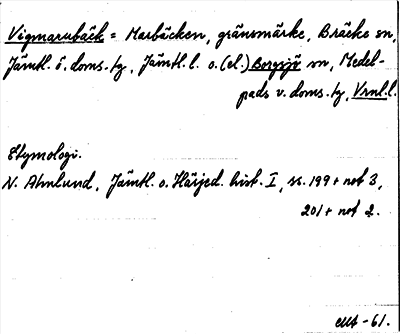 Vigmarubäck = Marbäcken, gränsmärke, Bräcke sn,
Jämtl. ö. doms. tg, Jämtl. l. o. (el.) Borgsjö sn, Medel-
pads v. doms. tg, Vrnl. l.
Etymologi.
N. Ahnlund, Jämtl. o. Härjed. hist. I, ss. 199 + not 3,
201 + not 2.
-61.